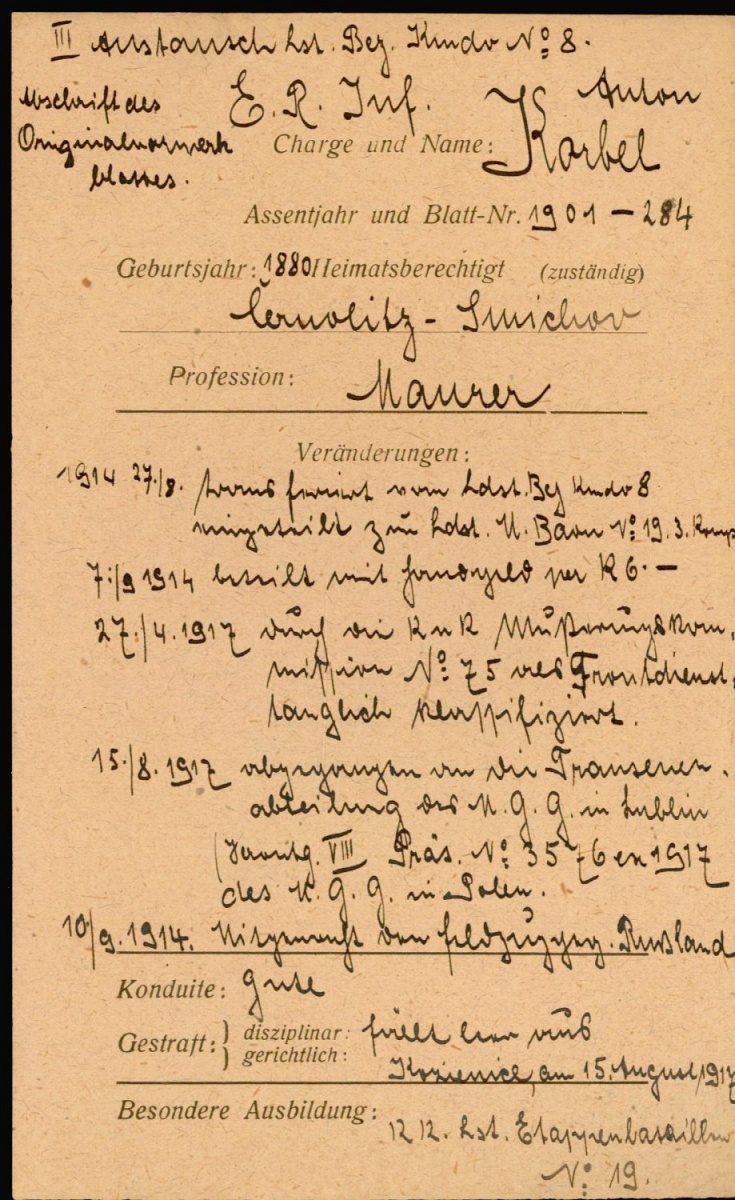 III Austausch Lst. Bez. Kmdo No 8.
Abschrift des
Originalvormerk
blattes.
E. R. Inf. Anton
Charge und Name: Korbel
Assentjahr und Blatt-Nr. 1901 – 284
Geburtsjahr: 1880 Heimatsberechtigt (zuständig)
Černolitz - Smichov
Profession: Maurer
Veränderungen:
1914 27./8. transferiert vom Ldst. Bez Kmdo 8
eingeteilt zum Ldst. M. Baon No: 19. 3. Komp
7:/9 1914 beteilt mit Handgeld per K 6.—
27:/4. 1917 durch die K u K Musterungskom,
mission No: 75 als Frontdienst,
tauglich klassifiziert.
15./8. 1917 abgegangen an die Transenen.
abteilung des M. G. G. in Lublin
VIII Präs. No: 3576 ex 1917
des M. G. G. in Polen.
10/9. 1914. Mitgemacht den Feldzug geg. Russland
Konduite: gute
Gestraft: } disziplinar: füllt hier aus
} gerichtlich:
Kozienice, am 15. August 1917
Besondere Ausbildung:
Lst. Etappenbataillon
No: 19.